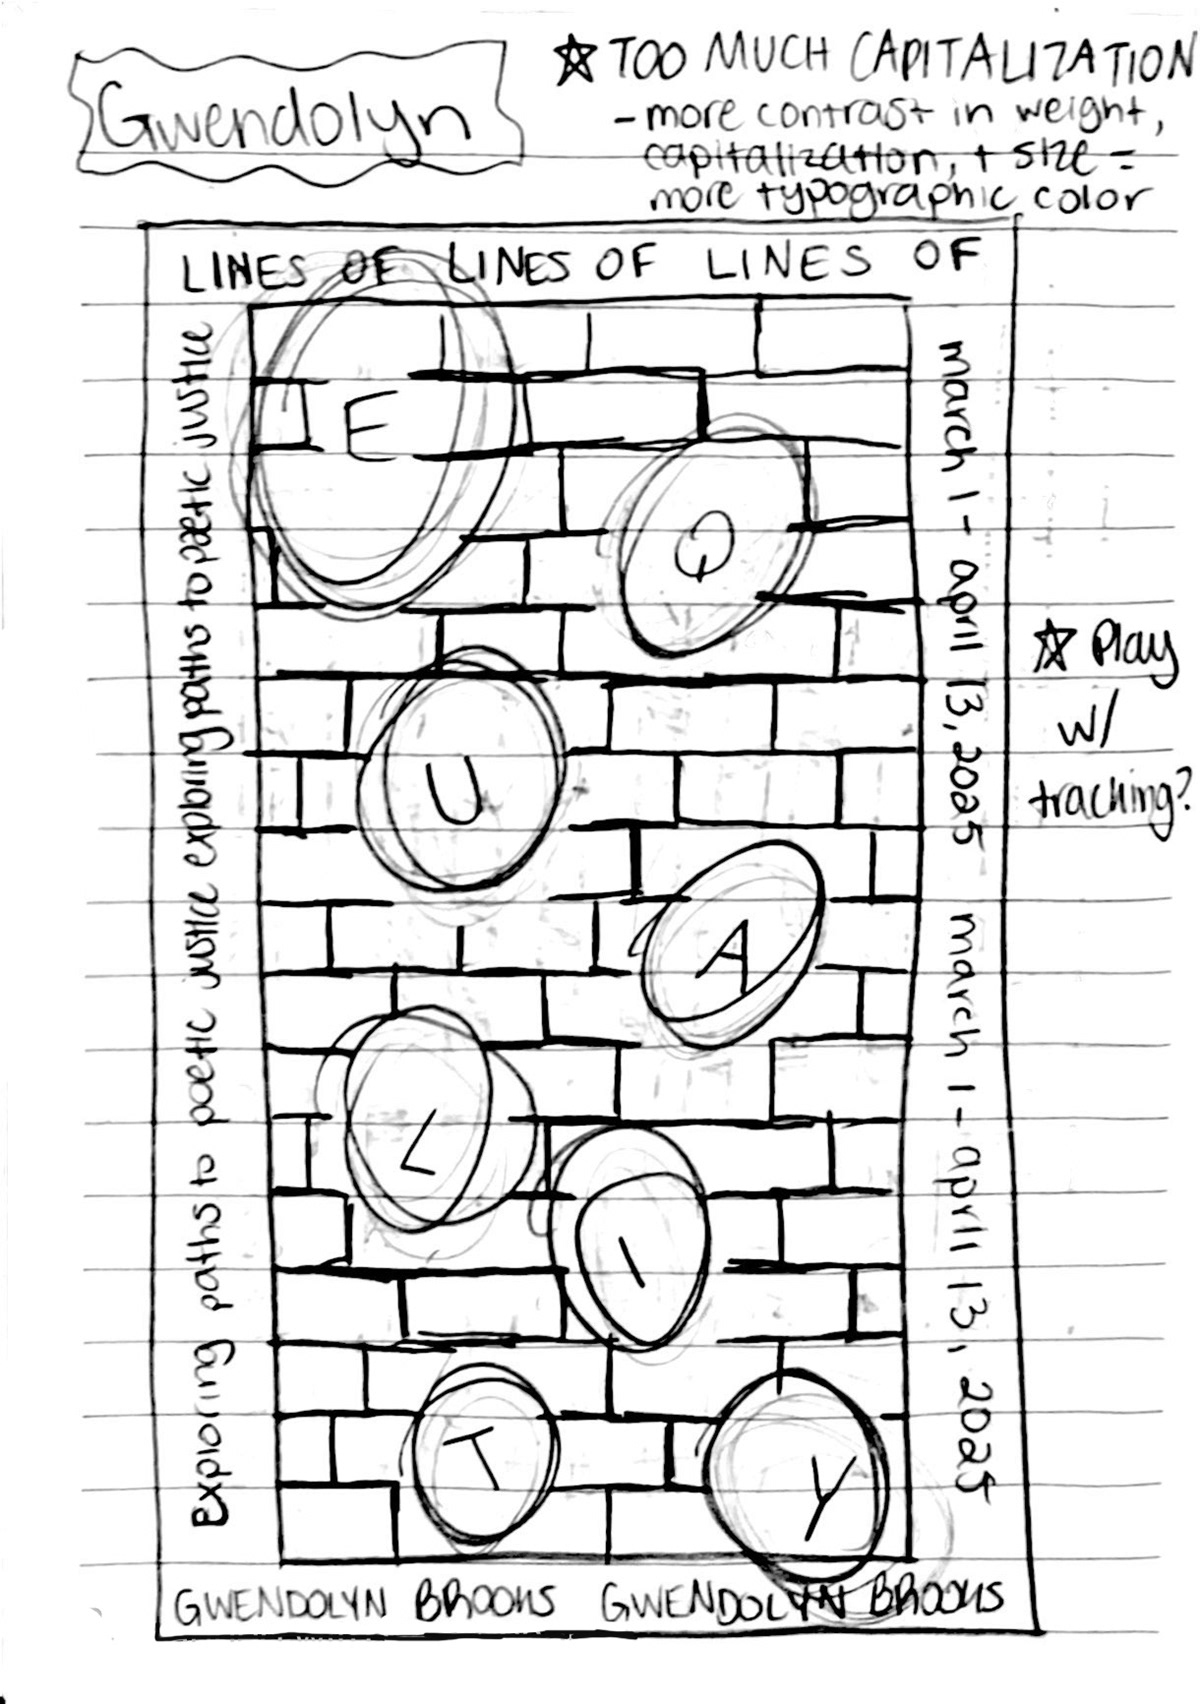 Gwendolyn
☆ TOO MUCH CAPITALIZATION
- more contrast in weight,
capitalization, + size =
more typographic color
LINES OF LINES OF LINES OF
Exploring paths to poetic justice exploring paths to poetic justice
march 1 - april 13, 2025 march 1 - april 13, 2025
E
Q
U
A
L
I
T
Y
☆ Play
w/
tracking?
GWENDOLYN BROOKS GWENDOLYN BROOKS